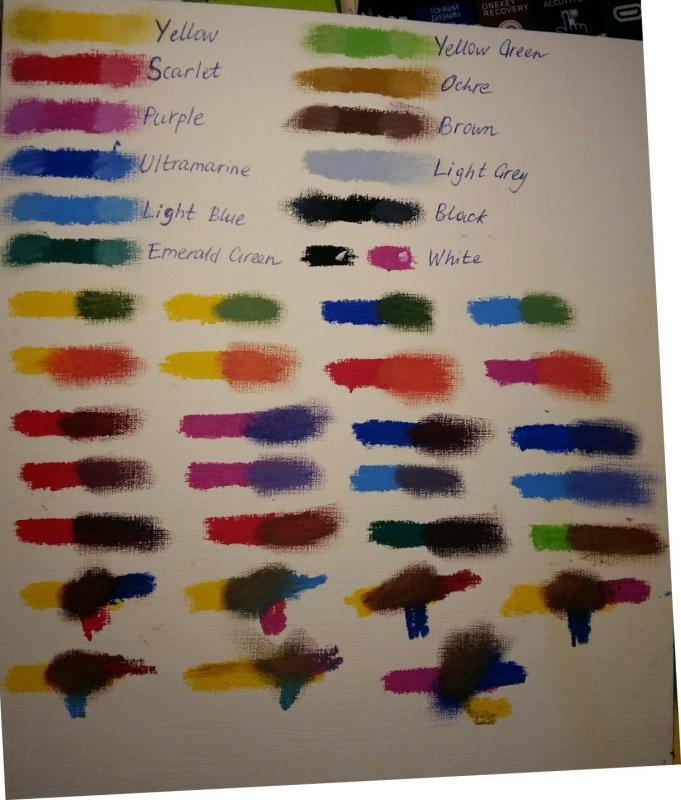 ТОНКИЙ
ДИЗАЙН
ONEKEY
RECOVERY
Yellow
Scarlet
Purple
Ultramarine
Light Blue
Emerald Green
Yellow Green
Ochre
Brown
Light Grey
Black
White